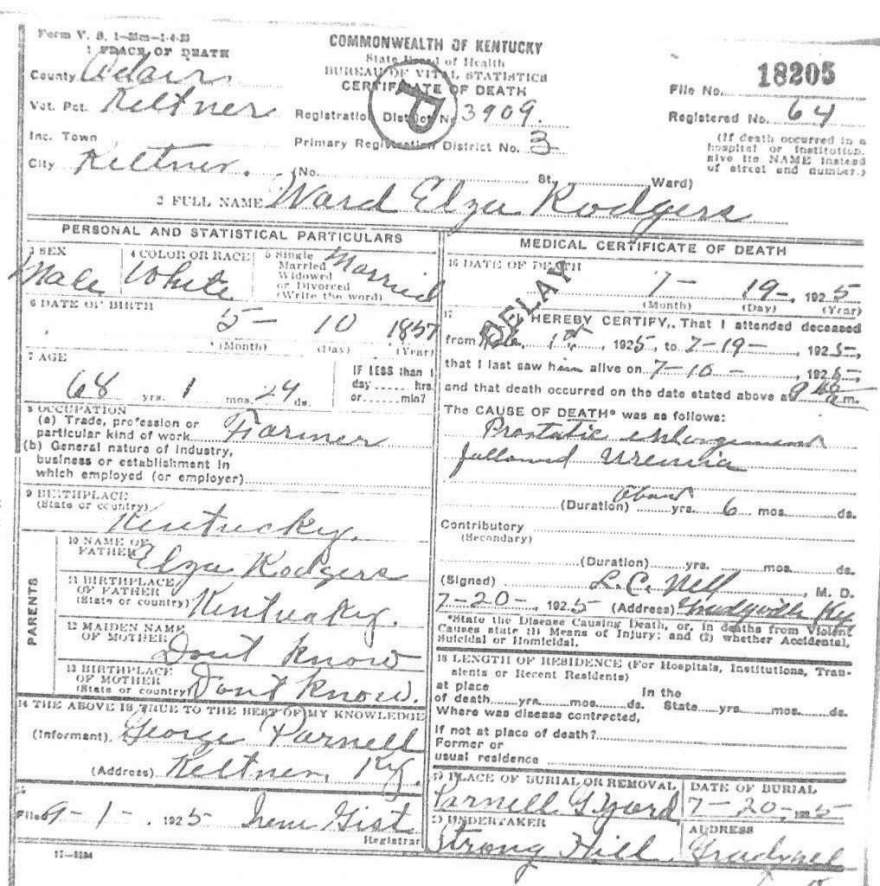 Form V. S. 1-35m-1-4-23
1 PLACE OF DEATH
COMMONWEALTH OF KENTUCKY
State Board of Health
BUREAU OF VITAL STATISTICS
CERTIFICATE OF DEATH
County Adair
File No. 18205
Vot. Pct. Keltner
Registration District No 3909.
Registered No. 64
Inc. Town
Primary Registration District No. 3
(If death occurred in a
hospital or institution,
give its NAME instead
of street and number.)
City Keltner. (No. St. Ward)
2 FULL NAME Ward Elza Rodgers
PERSONAL AND STATISTICAL PARTICULARS
3 SEX
Male
4 COLOR OR RACE
White
5 Single
Married
Widowed
or Divorced
(Write the word)
Married
6 DATE OF BIRTH
5- 10 1857
(Month) (Day) (Year)
7 AGE
68 yrs. 1 mos. 24 ds.
IF LESS than 1
day hrs.
or min?
8 OCCUPATION
(a) Trade, profession or
particular kind of work Farmer
(b) General nature of industry,
business or establishment in
which employed (or employer)
9 BIRTHPLACE
(State or country)
Kentucky.
PARENTS
10 NAME OF
FATHER Elza Rodgers
11 BIRTHPLACE
OF FATHER
(State or country) Kentucky.
12 MAIDEN NAME
OF MOTHER
Dont Know
13 BIRTHPLACE
OF MOTHER
(State or country) Dont Know.
14 THE ABOVE IS TRUE TO THE BEST OF MY KNOWLEDGE
(Informant) George Parnell
(Address) Keltner, Ky.
15
Filed 9-1-, 1925 Irene Gist
Registrar
11-3184
MEDICAL CERTIFICATE OF DEATH
16 DATE OF DEATH
7- 19-, 1925
(Month) (Day) (Year)
DELAY
17 I HEREBY CERTIFY, That I attended deceased
from 1925, to 7-19-, 1925-,
that I last saw him alive on 7-10-, 1925,
and that death occurred on the date stated above at 9 m.
The CAUSE OF DEATH* was as follows:
Prostatic enlargement
followed Uremia
about
(Duration) yrs. 6 mos. ds.
Contributory
(Secondary)
(Duration) yrs. mos. ds.
(Signed) L. C. Nell, M. D.
7-20-, 1925 (Address) Gradyville Ky
*State the Disease Causing Death, or, in deaths from Violent
Causes state (1) Means of Injury; and (2) whether Accidental,
Suicidal or Homicidal.
18 LENGTH OF RESIDENCE (For Hospitals, Institutions, Tran-
sients or Recent Residents)
at place
of death yrs. mos. ds.
In the
State yrs. mos. ds.
Where was disease contracted,
If not at place of death?
Former or
usual residence
19 PLACE OF BURIAL OR REMOVAL
Parnell G. yard
DATE OF BURIAL
7-20-, 1925
20 UNDERTAKER
Strong Hill
ADDRESS